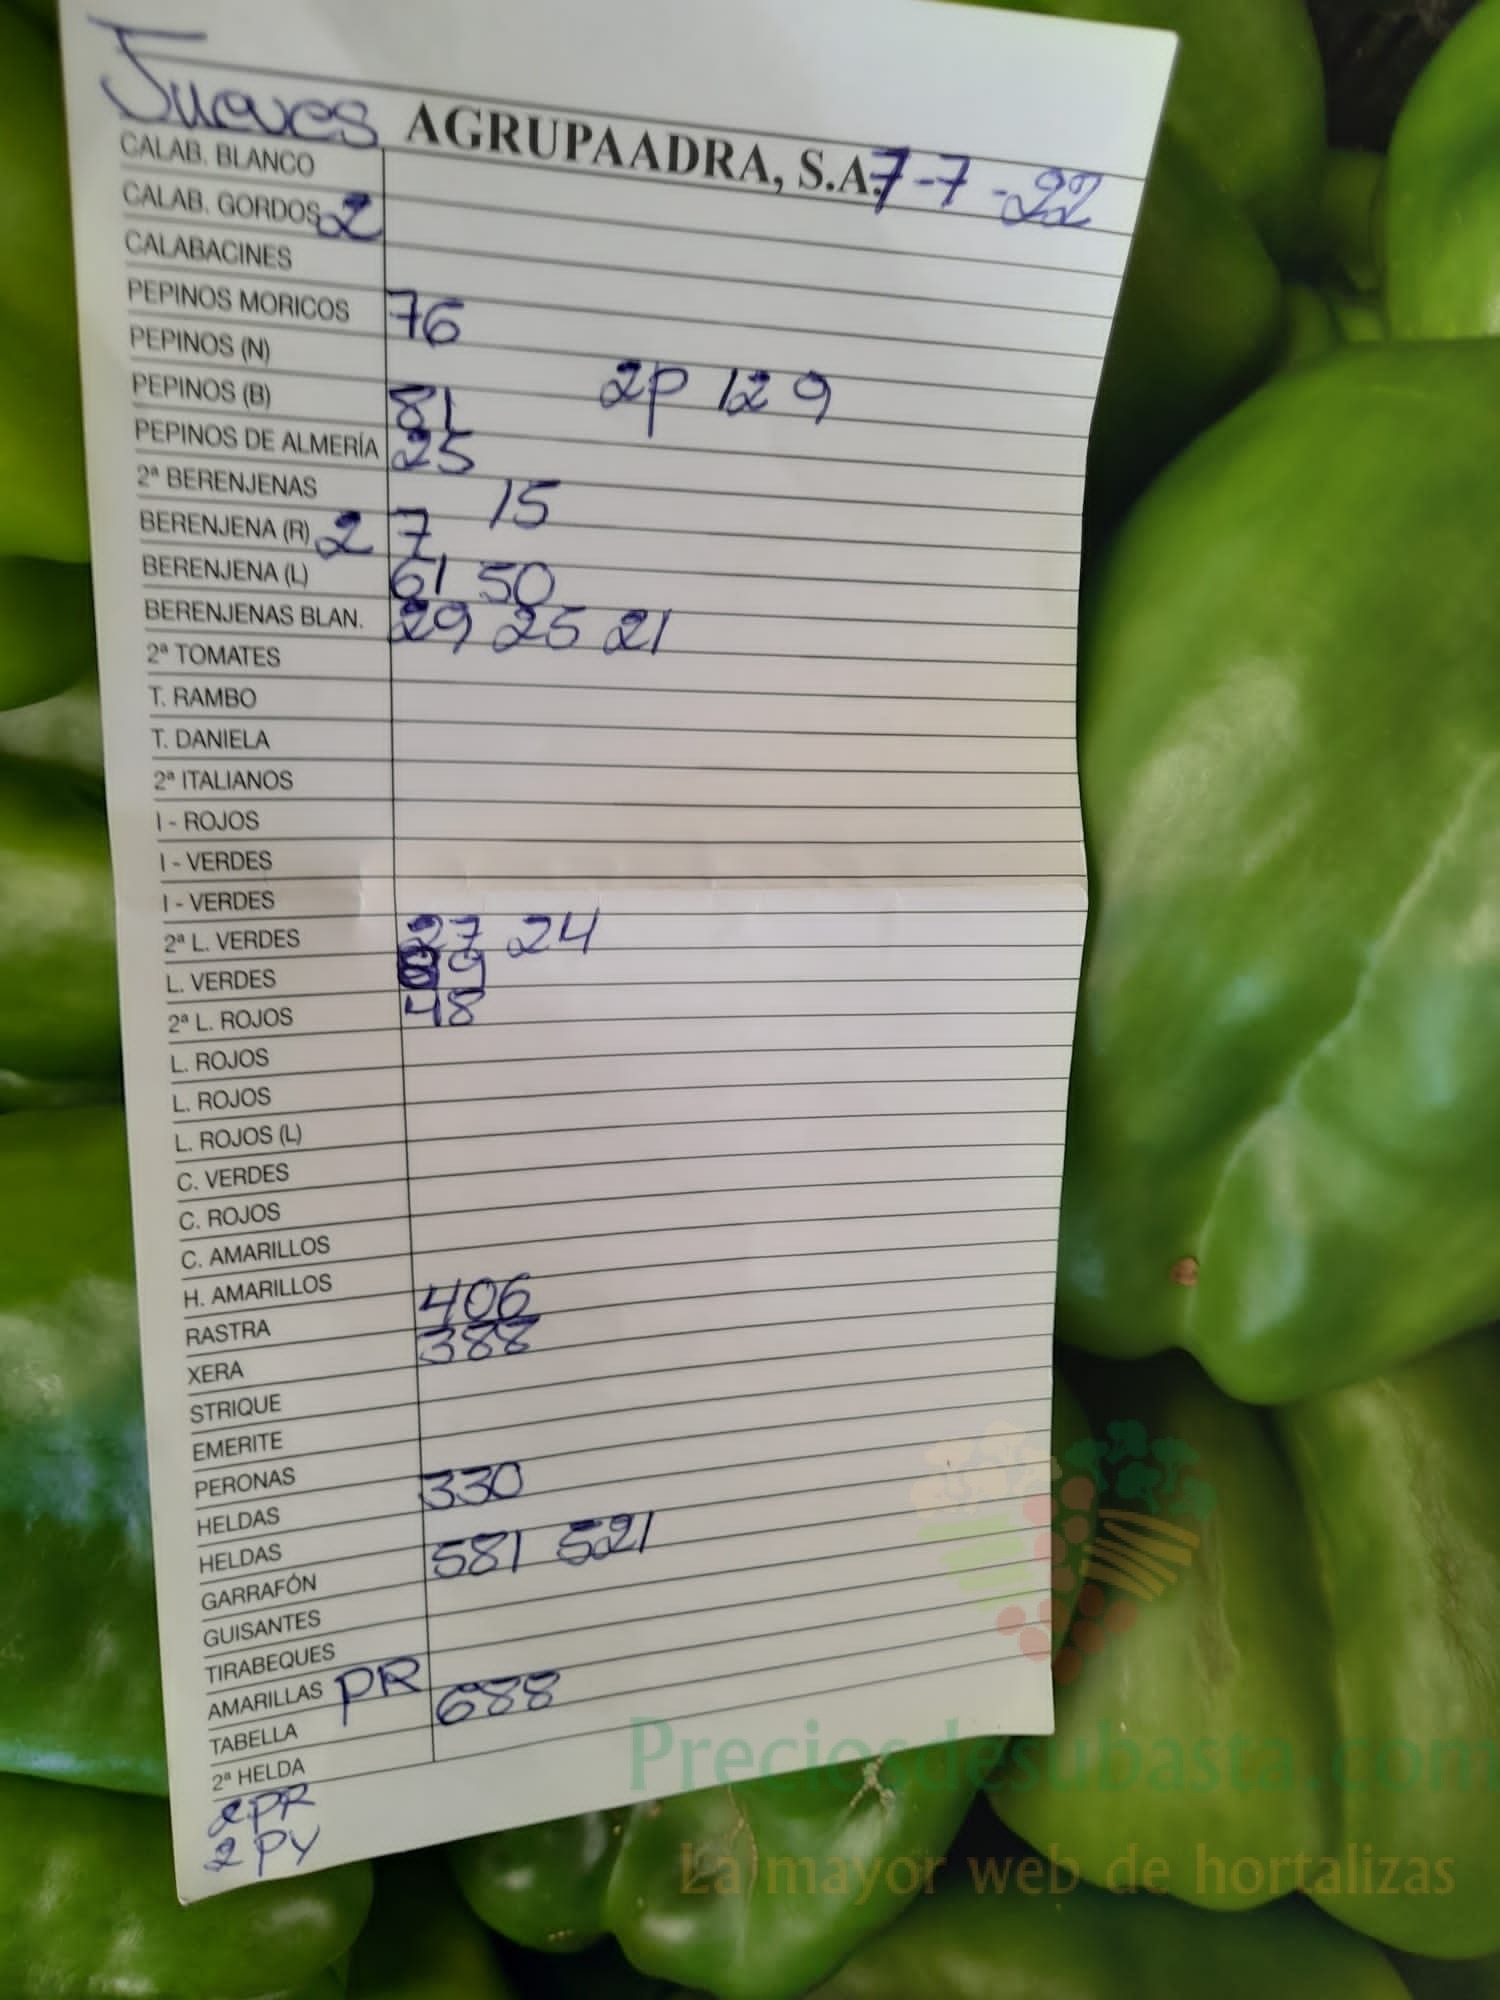 Jueves AGRUPAADRA, S.A. 7-7-22
CALAB. BLANCO
CALAB. GORDOS 2
CALABACINES
PEPINOS MORICOS 76
PEPINOS (N) 2P 129
PEPINOS (B) 81
PEPINOS DE ALMERÍA 25
2ª BERENJENAS 15
BERENJENA (R) 2 7
BERENJENA (L) 61 50
BERENJENAS BLAN. 29 25 21
2ª TOMATES
T. RAMBO
T. DANIELA
2ª ITALIANOS
I - ROJOS
I - VERDES
I - VERDES
2ª L. VERDES 27 24
L. VERDES 89
2ª L. ROJOS 48
L. ROJOS
L. ROJOS
L. ROJOS (L)
C. VERDES
C. ROJOS
C. AMARILLOS
H. AMARILLOS
RASTRA 406
XERA 388
STRIQUE
EMERITE
PERONAS
HELDAS 330
HELDAS
GARRAFÓN 581 521
GUISANTES
TIRABEQUES
AMARILLAS PR
TABELLA 688
2ª HELDA
2PR
2PY
Preciosdesubasta.com
La mayor web de hortalizas